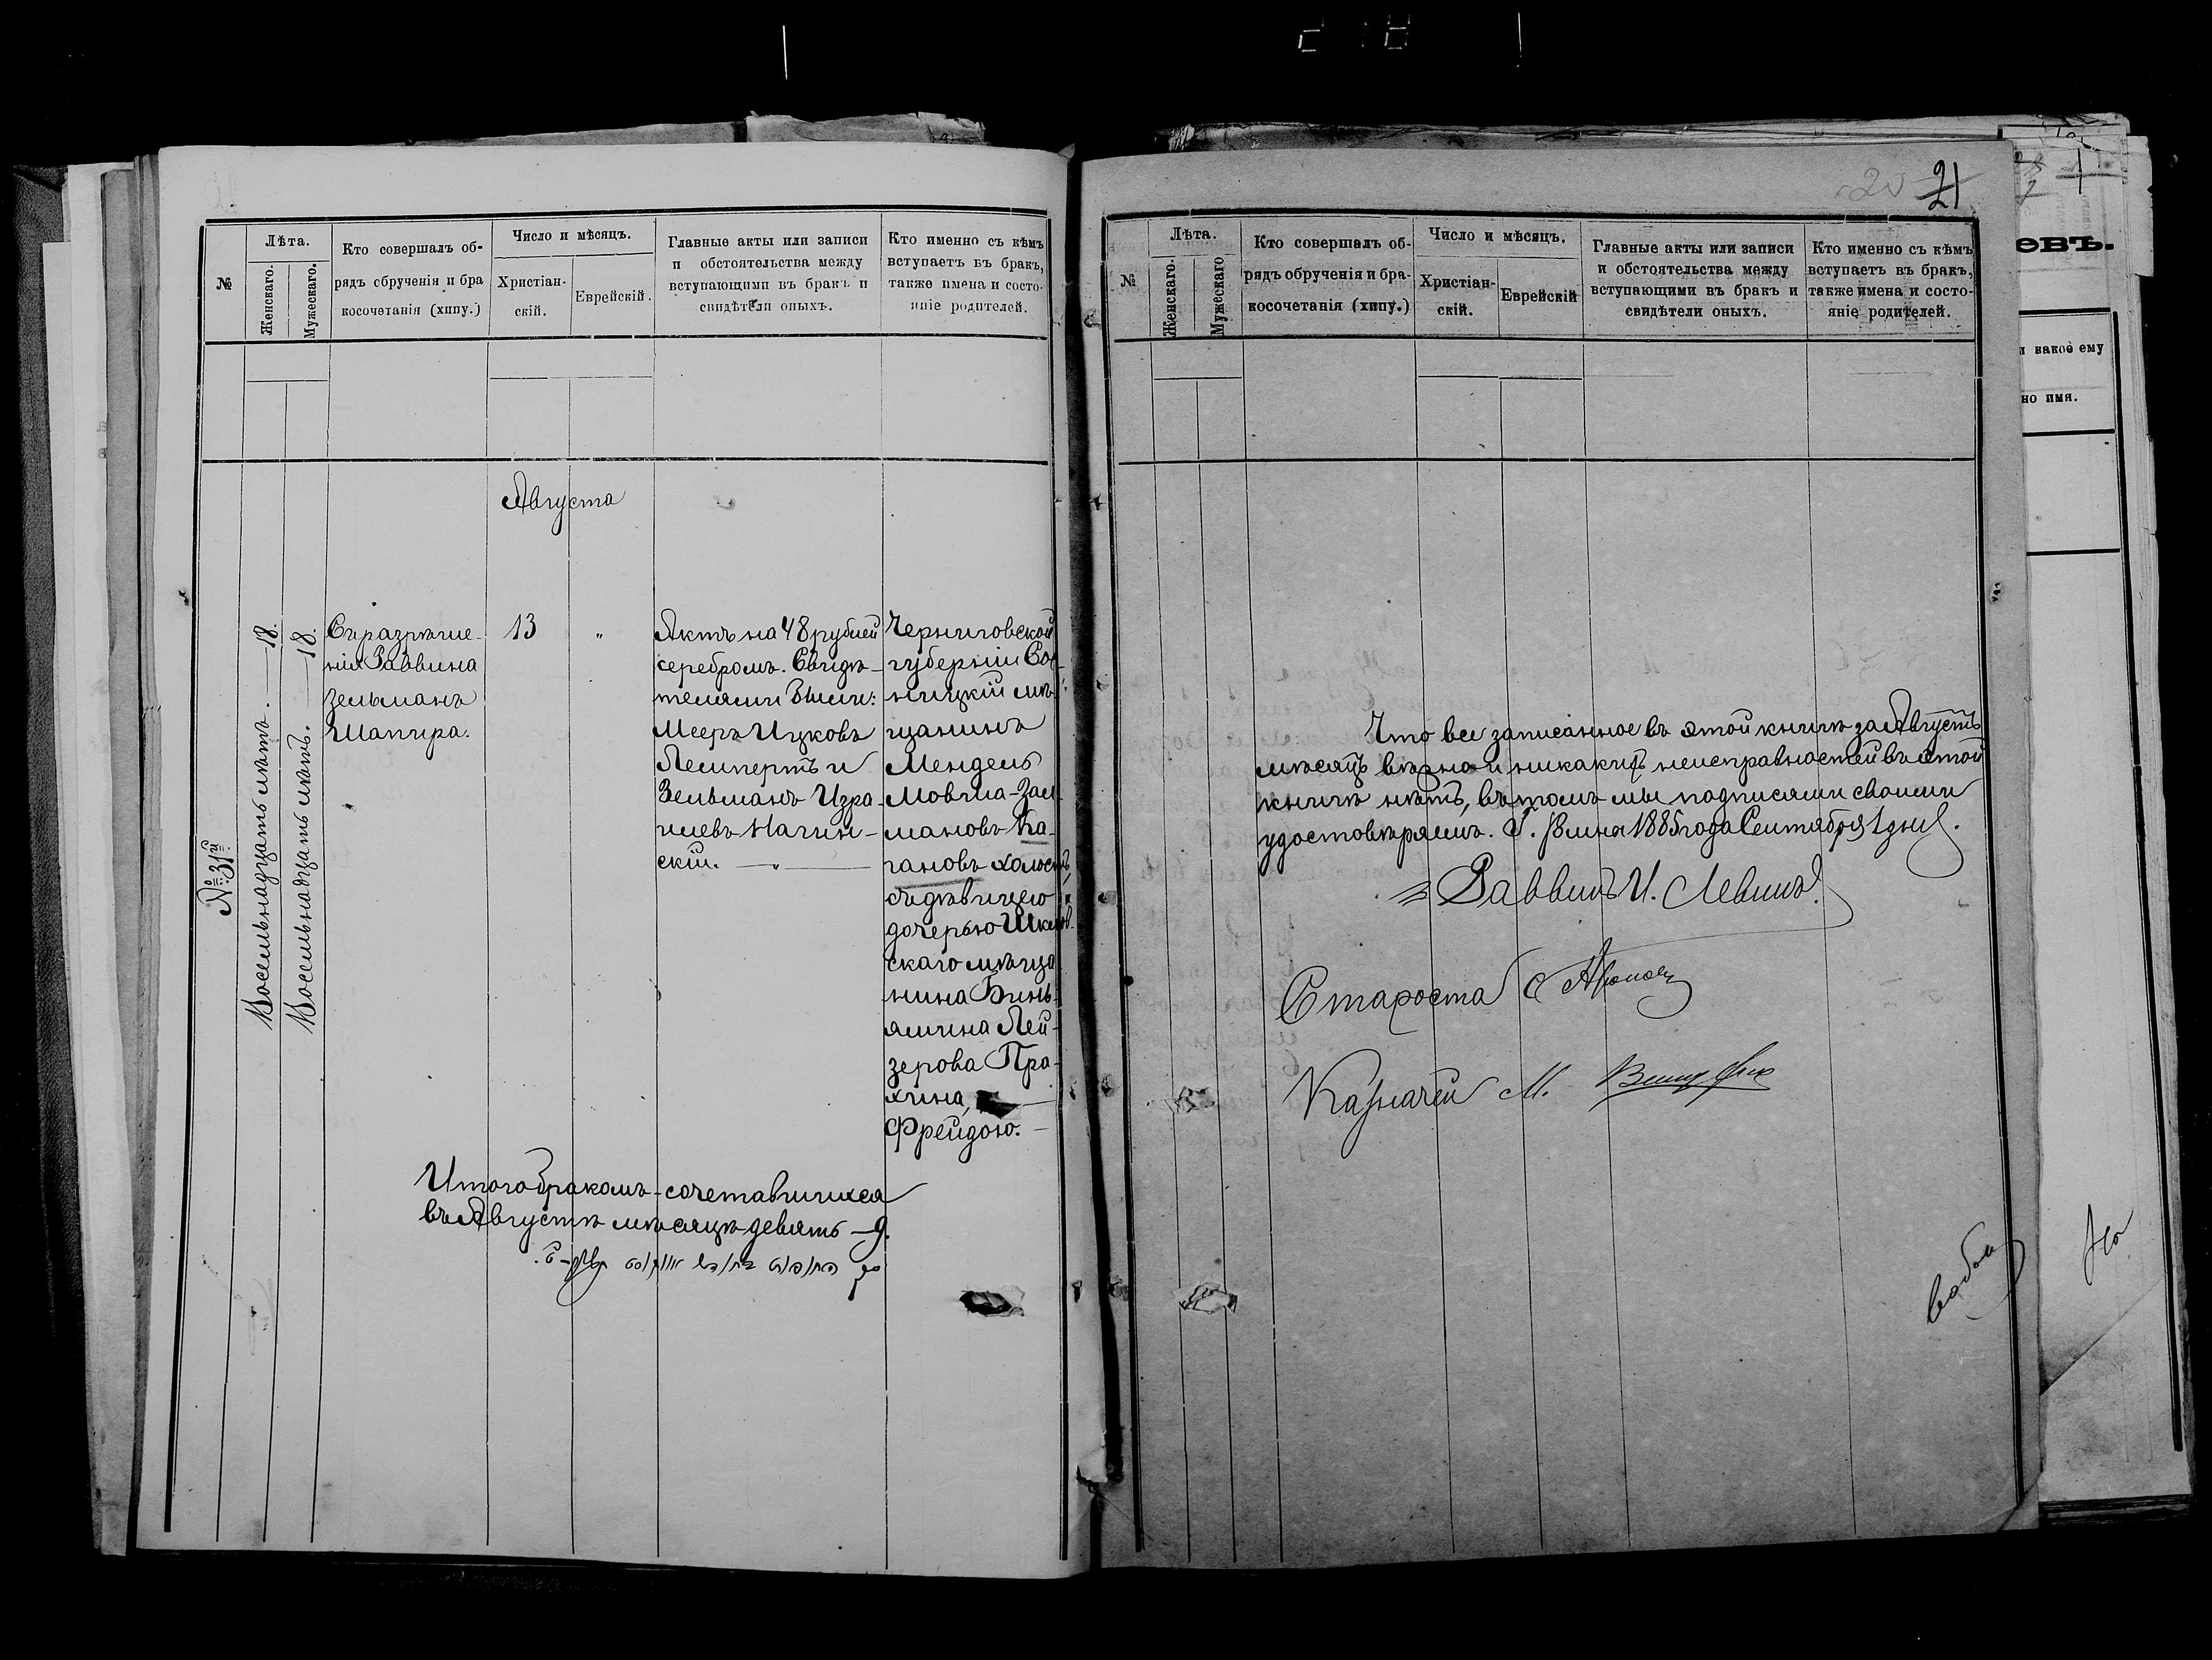 №
Лѣта.
Женскаго.
Мужескаго.
Кто совершалъ об-
рядъ обрученія и бра
косочетанія (хипу.)
Число и мѣсяцъ.
Христіан-
скій.
Еврейскій.
Главные акты или записи
и обстоятельства между
вступающими въ бракъ и
свидѣтели оныхъ.
Кто именно съ кѣмъ
вступаетъ въ бракъ,
также имена и состо-
яніе родителей.
Августа
№ 31й
Восемьнадцать лѣтъ. — 18.
Восемьнадцать лѣтъ. — 18.
Съ разрѣше-
нія Раввина
Зельманъ
Шапира.
13
"
Актъ на 48 рублей
серебромъ. Свидѣ-
телями были:
Мееръ Ицковъ
Лемпертъ и
Зельманъ Изра-
илевъ Нагин-
скій. — " —
Черниговской
губерніи Сос-
ницкій мѣ-
щанинъ
Мендель
Мовша-Зал-
мановъ Ка-
гановъ холостъ,
съ дѣвицею
дочерью Шклов
скаго мѣща
нина Бинь-
ямина Лей-
зерова Пра-
хина,
Фрейдою. —
Итого бракомъ-сочетавшихся
въ Августѣ мѣсяцѣ девять — 9.
21
№
Лѣта.
Женскаго.
Мужескаго
Кто совершалъ об-
рядъ обрученія и бра-
косочетанія (хипу.)
Число и мѣсяцъ.
Христіан-
скій.
Еврейскій
Главные акты или записи
и обстоятельства между
вступающими въ бракъ и
свидѣтели оныхъ.
Кто именно съ кѣмъ
вступаетъ въ бракъ,
также имена и состо-
яніе родителей.
Что все записанное въ этой книгѣ за Августъ
мѣсяцъ вѣрно и никакихъ неисправностей въ этой
книгѣ нѣтъ, въ томъ мы подписями своими
удостовѣряемъ. Г. 1885 года Сентября 1 дня.
Раввинъ И. Левинъ.
Староста
Казначей М.
евъ.
какое ему
но имя.